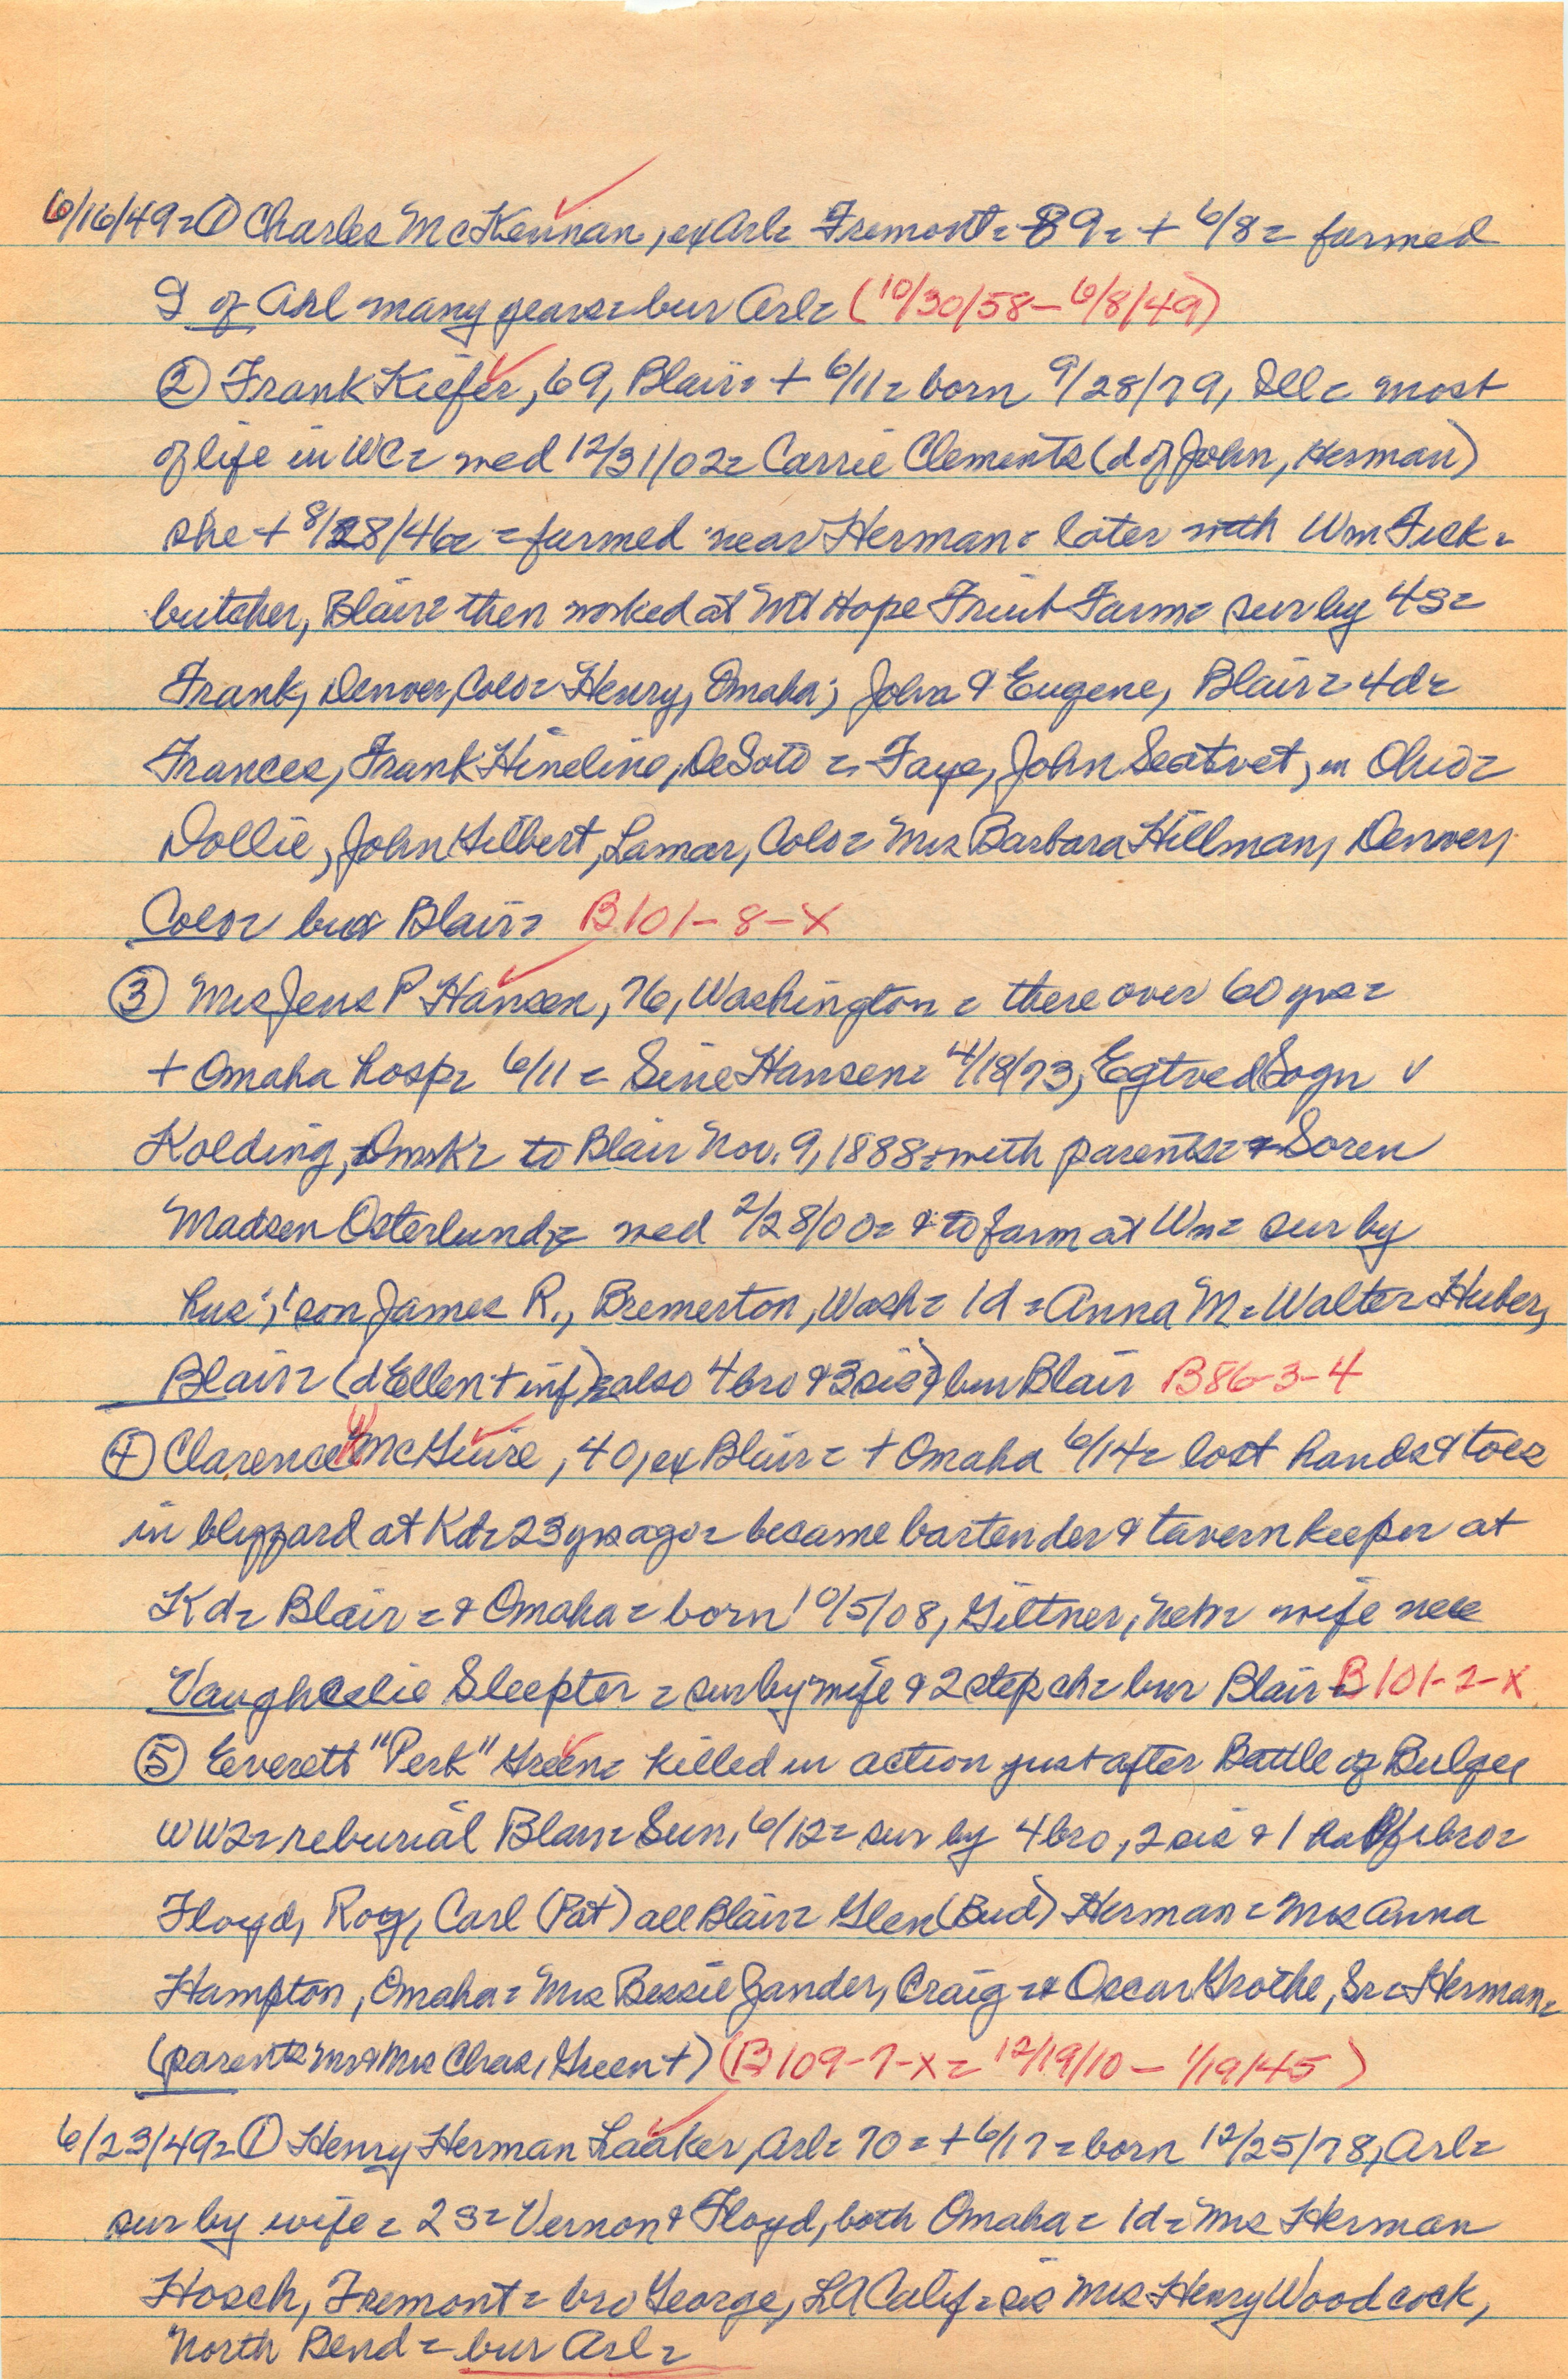 6/16/49= ① Charles McKennan, ex Arl= Fremont= 89= + 6/8= farmed
S of Arl many years= bur Arl= (10/30/58-6/8/49)
② Frank Kiefer, 69, Blair= + 6/11= born 9/28/79, Ill= most
of life in WC= wed 12/31/02= Carrie Clements (d of John, Herman)
she + 8/28/46= farmed near Herman= later with Wm Fick=
butcher, Blair= then worked at Mt Hope Fruit Farm= sur by 4s=
Frank, Denver, Colo= Henry, Omaha; John & Eugene, Blair= 4d=
Frances, Frank Hineline, DeSoto=, Faye, John Seatvet, in Ohio=
Dollie, John Gilbert, Lamar, Colo= Mrs Barbara Hillman, Denver,
Colo= bur Blair= B101-8-X
③ Mrs Jens P Hansen, 76, Washington= there over 60 yrs=
+ Omaha hosp= 6/11= Sine Hansen= 4/18/73, Egtved Sogn v
Kolding, Dmrk= to Blair Nov. 9, 1888= with parents= & Soren
Madsen Osterlund= wed 2/28/00= & to farm at Wn= sur by
hus; 1 son James R., Bremerton, Wash= 1d= Anna M= Walter Huber,
Blair= (d Ellen + inf)= also 4 bro & 3 sis) bur Blair B86-3-4
④ Clarence W McGuire, 40, ex Blair= + Omaha 6/14= lost hands & toes
in blizzard at Kd= 23 yrs ago= became bartender & tavern keeper at
Kd= Blair= & Omaha= born 10/5/08, Giltner, Neb= wife nee
Sleepter= sur by wife & 2 step ch= bur Blair= B101-2-X
⑤ Everett "Perk" Green= killed in action just after Battle of Bulge
WW2= reburial Blair= Sun, 6/12= sur by 4 bro, 2 sis & 1 half bro=
Floyd, Roy, Carl (Pat) all Blair= Glen (Bud) Herman= Mrs Anna
Hampton, Omaha= Mrs Bessie Zander, Craig= & Oscar Grothe, Sr= Herman=
(parents Mr & Mrs Chas, Green +) (B109-7-X= 12/19/10-1/19/45)
6/23/49= ① Henry Herman Laaker, Arl= 70= + 6/17= born 12/25/78, Arl=
sur by wife= 2s= Vernon & Floyd, both Omaha= 1d= Mrs Herman
Hosch, Fremont= bro George, LA Calif= sis Mrs Henry Woodcock,
North Bend= bur Arl=